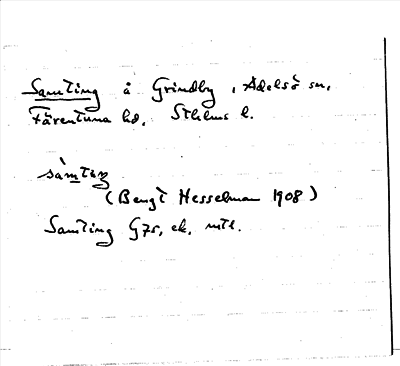 Samting å Grindby, Adelsö sn,
Färentuna hd, Sthlms l.
sàmtıŋ
(Bengt Hesselman 1908)
Samting Gzs, ek. mtl.